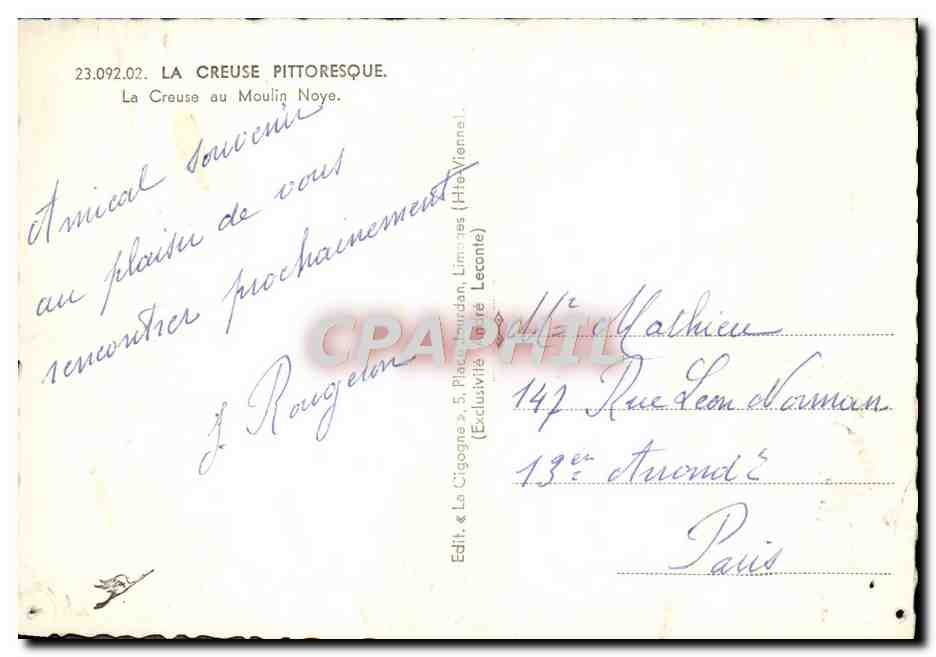 23.092.02. LA CREUSE PITTORESQUE.
La Creuse au Moulin Noye.
Amical souvenir
au plaisir de vous
rencontrer prochainement
J Rougeron
Edit. « La Cigogne ». 5, Place Jourdan, Limoges (Hte-Vienne).
(Exclusivité André Leconte)
CPAPHIL
Mr Mathieu
147 Rue Leon Norman
13er Arrondt
Paris